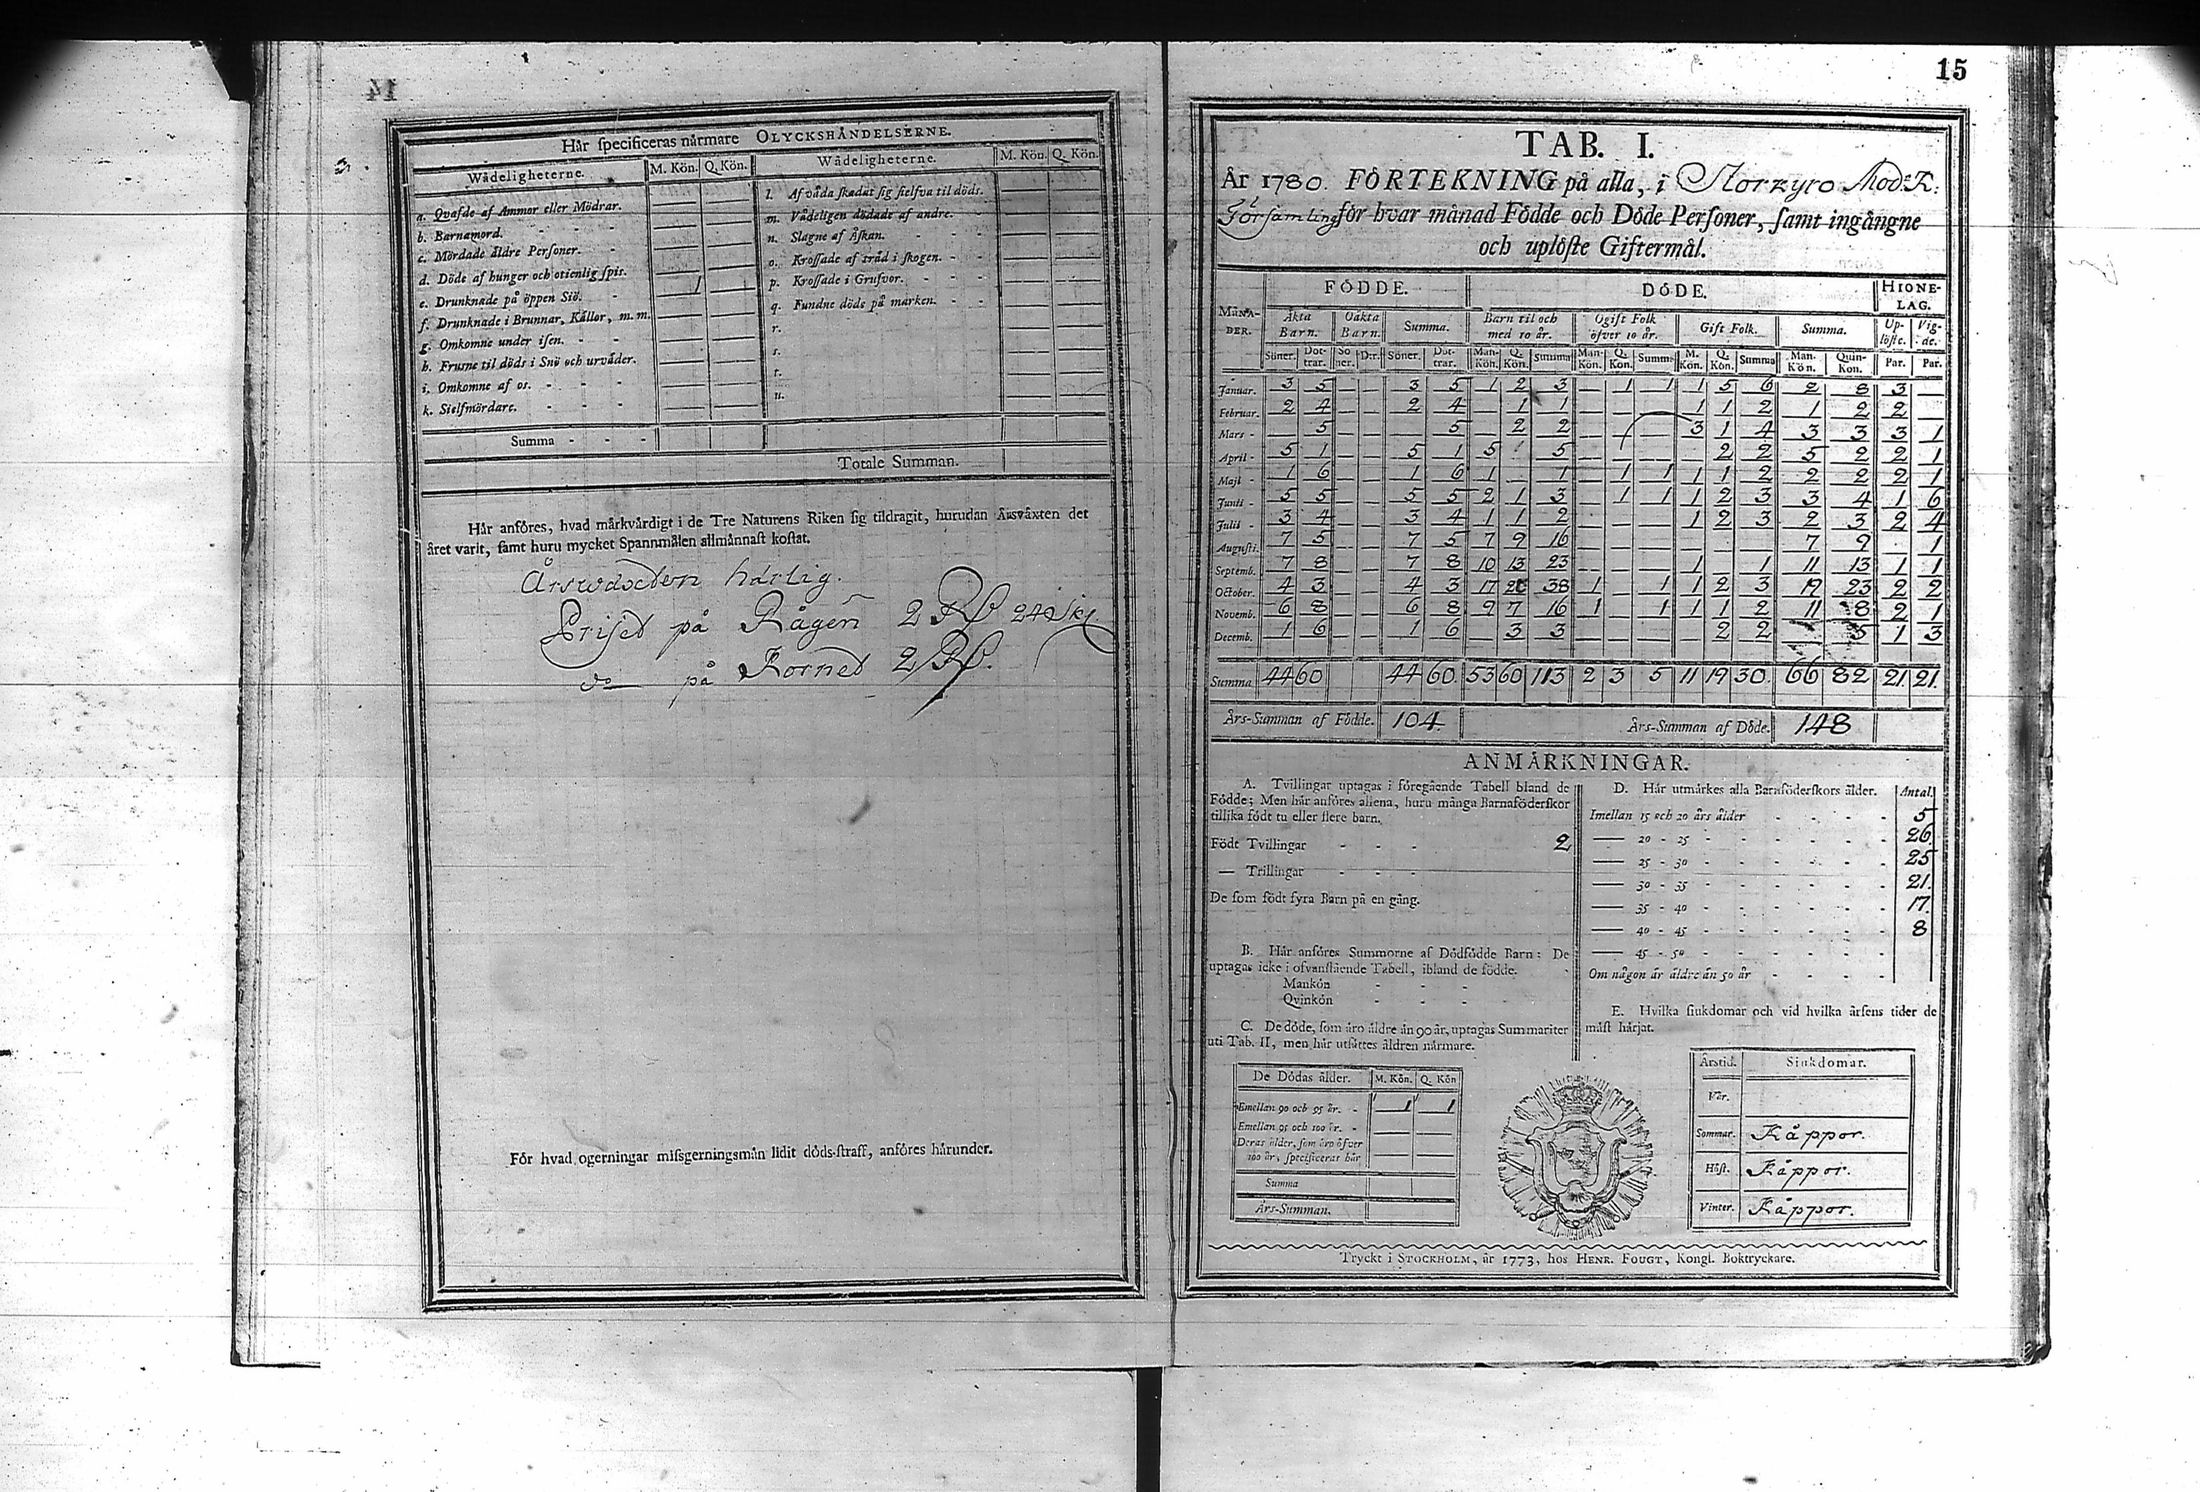 15
Här specificeras närmare OLYCKSHÄNDELSERNE.
Wådeligheterne. M. Kön. Q. Kön. Wådeligheterne. M. Kön. Q. Kön.
a. Qvafde af Ammor eller Mödrar. — — l. Af våda skadat sig sielfva til döds. — —
b. Barnamord. — — m. Vådeligen dödade af andre. — —
c. Mördade äldre Personer. — — n. Slagne af Åskan. — —
d. Döde af hunger och otienlig spis. — — o. Krossade af träd i skogen. — —
e. Drunknade på öppen Siö. 1 — p. Krossade i Grufvor. — —
f. Drunknade i Brunnar, Källor, m. m. — — q. Fundne döds på marken. — —
g. Omkomne under isen. — — r.
h. Frusne til döds i Snö och urväder. — — s.
i. Omkomne af os. — — t.
k. Sielfmördare. — — u.
Summa
Totale Summan.
Här anföres, hvad märkvärdigt i de Tre Naturens Riken sig tildragit, hurudan Årsväxten det
året varit, samt huru mycket Spannmålen allmännast kostat.
Årswäxten härlig.
Priset på Rågen 2 Rd 24 skl.
do på Kornet 2 Rd.
För hvad ogerningar missgerningsmän lidit döds-straff, anföres härunder.
TAB. I.
År 1780. FÖRTEKNING på alla, i Storkyro Mod: K:
Församling för hvar månad Födde och Döde Personer, samt ingångne
och uplöste Giftermål.
MÅNADER. FÖDDE. DÖDE. HIONELAG.
Äkta Barn. Oäkta Barn. Summa. Barn til och med 10 år. Ogift Folk öfver 10 år. Gift Folk. Summa. Uplöste. Vigde.
Söner. Dottrar. Söner. Dtr. Söner. Dottrar. Mankön. Q. Kön. Summa Mankön. Q. Kön. Summa M. Kön. Q. Kön. Summa Mankön. Quinkon. Par. Par.
Januar. 3 5 — — 3 5 1 2 3 — 1 1 1 5 6 2 8 3 —
Februar. 2 4 — — 2 4 — 1 1 — — — 1 1 2 1 2 2 —
Mars — 5 — — — 5 — 2 2 — — — 3 1 4 3 3 3 1
April 5 1 — — 5 1 5 5 — — — — 2 2 5 2 2 1
Maji 1 6 — — 1 6 1 — 1 — 1 1 1 1 2 2 2 2 1
Junii 5 5 — — 5 5 2 1 3 — 1 1 1 2 3 3 4 1 6
Julii 3 4 — — 3 4 1 1 2 — — — 1 2 3 2 3 2 4
Augusti. 7 5 — — 7 5 7 9 16 — — — — — — 7 9 1
Septemb. 7 8 — — 7 8 10 13 23 — — — 1 — 1 11 13 1 1
October. 4 3 — — 4 3 17 38 1 — 1 1 2 3 19 23 2 2
Novemb. 6 8 — — 6 8 9 7 16 1 — 1 1 1 2 11 8 2 1
Decemb. 1 6 — — 1 6 — 3 3 — — — — 2 2 5 1 3
Summa 44 60 44 60 53 60 113 2 3 5 11 19 30 66 82 21. 21.
Års-Summan af Födde. 104. Års-Summan af Döde. 148
ANMÄRKNINGAR.
A. Tvillingar uptagas i föregående Tabell bland de
Födde; Men här anföres allena, huru många Barnaföderskor
tillika födt tu eller flere barn.
Födt Tvillingar 2
— Trillingar
De som födt fyra Barn på en gång.
B. Här anföres Summorne af Dödfödde Barn: De
uptagas icke i ofvanstående Tabell, ibland de födde.
Mankön
Qvinkön
C. De döde, som äro äldre än 90 år, uptagas Summariter
uti Tab. II, men här utsättes åldren närmare.
De Dödas ålder. M. Kön. Q. Kön
Emellan 90 och 95 år. 1 1
Emellan 95 och 100 år. — —
Deras ålder, som äro öfver
100 år, specificeras här — —
Summa
Års-Summan.
D. Här utmärkes alla Barnföderskors ålder. Antal.
Imellan 15 och 20 års ålder 5
— 20 - 25 26
— 25 - 30 25
— 30 - 35 21.
— 35 - 40 17.
— 40 - 45 8
— 45 - 50
Om någon är äldre än 50 år
E. Hvilka siukdomar och vid hvilka årsens tider de
mäst härjat.
Årstid. Siukdomar.
Vår.
Sommar. Kåppor.
Höst. Kåppor.
Vinter. Kåppor.
Tryckt i STOCKHOLM, år 1773, hos HENR. FOUGT, Kongl. Boktryckare.